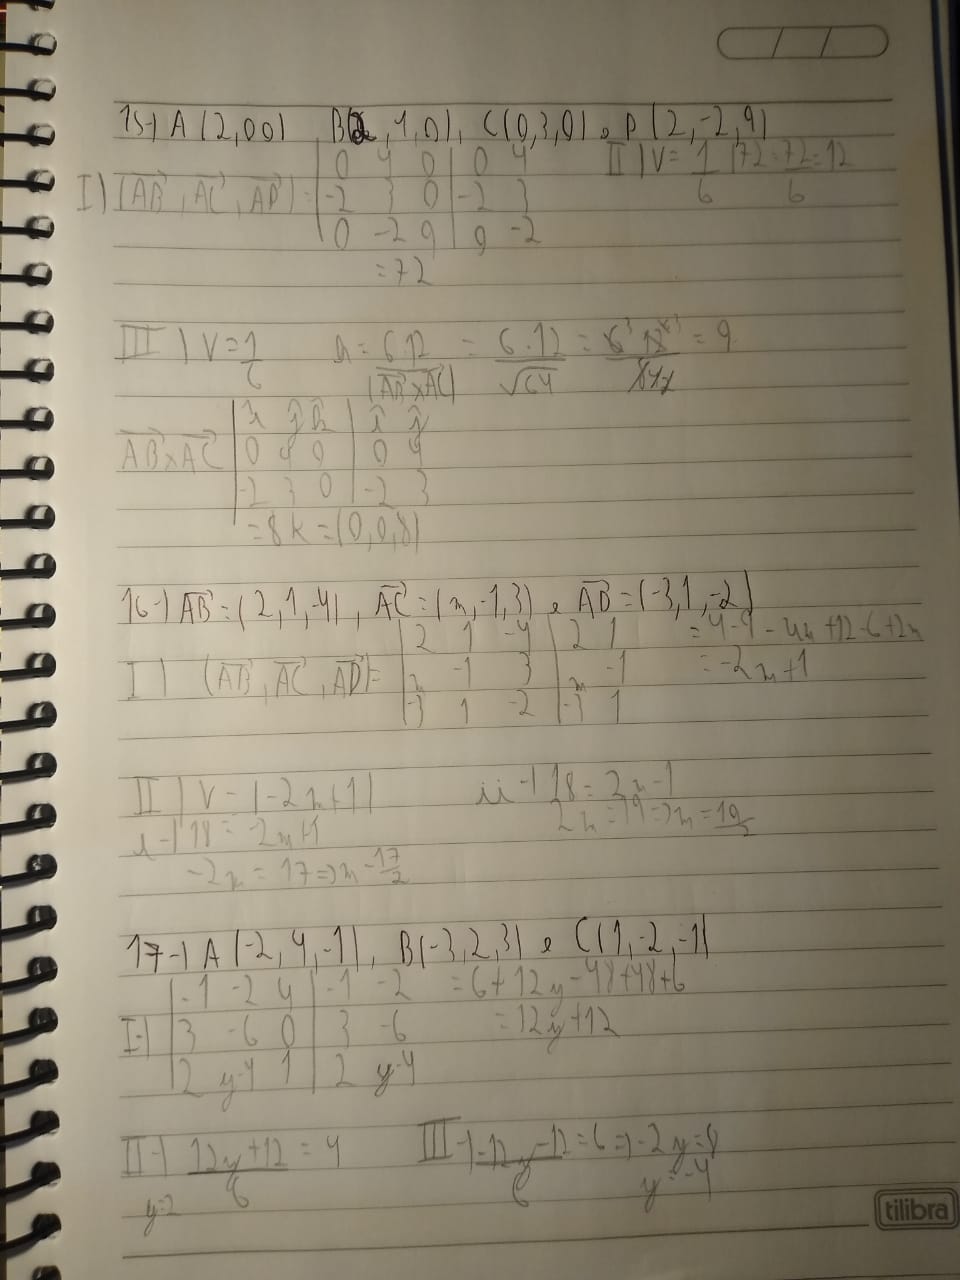 15-) A(2,0,0), B(2,4,0), C(0,3,0) e P(2,-2,9)
I) (AB, AC, AP) = | 0 4 0 | 0 4
-2 3 0 | -2 3
0 -2 9 | 0 -2
= 72
II) V = 1/6 |72| = 72/6 = 12
III) V = 1/6
h = 6.12/|AB x AC| = 6.12/√64 = = 9
AB x AC | i j k | i j
0 4 0 | 0 4
-2 3 0 | -2 3
= 8k = (0,0,8)
16-) AB = (2,1,-4), AC = (m,-1,3) e AD = (-3,1,-2)
I) (AB, AC, AD) = | 2 1 -4 | 2 1
m -1 3 | m -1
-3 1 -2 | -3 1
= 4-9-4m+12-6+2m
= -2m+1
II) V = |-2m+1|
i-) 18 = -2m+1
-2m = 17 => m = -17/2
ii-) 18 = 2m-1
2m = 19 => m = 19/2
17-) A(-2,4,-1), B(-3,2,3) e C(1,-2,-1)
I-) | -1 -2 4 | -1 -2
3 -6 0 | 3 -6
2 y-4 1 | 2 y-4
= 6+12y-48+48+6
= 12y+12
II-) 12y+12/6 = 4
y=2
III-) -12y-12/6 = 6 => -2y = 8
y = -4
tilibra